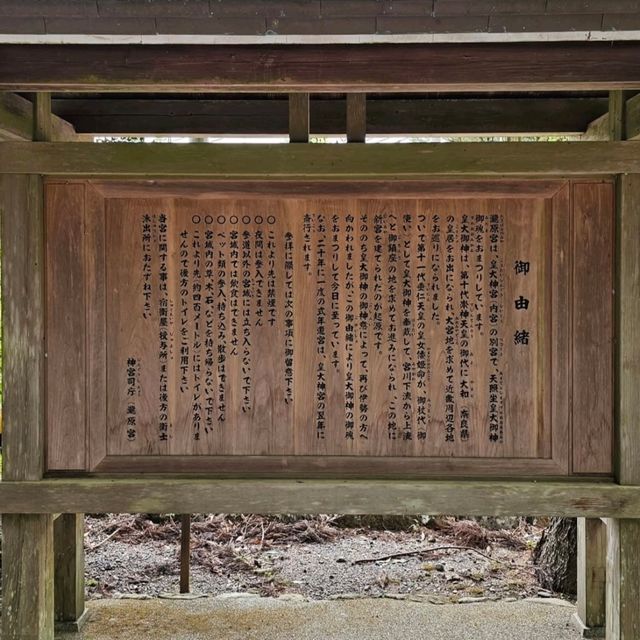 御由緒
瀧原宮は、皇大神宮（内宮）の別宮で、天照坐皇大御神
御魂をおまつりしています。
皇大御神は、第十代崇神天皇の御代に、大和（奈良県）
の皇居をお出になられ、大宮地を求めて近畿周辺各地
をお巡りになられました。
ついで第十一代垂仁天皇の皇女倭姫命が、御杖代（御
使い）として皇大御神を奉戴して、宮川下流から上流
へと御鎮座の地を求めてお進みになられ、この地に
新宮を建てられたのが起源です。
そののち皇大御神の御神意によって、再び伊勢の方へ
向かわれましたが、この御由緒により皇大御神の御魂
をおまつりして今日に至っています。
なお、二十年に一度の式年遷宮は、皇大神宮の翌年に
斎行されます。
参拝に際しては次の事項に御留意下さい
○これより先は禁煙です
○夜間は参入できません
○参道以外の宮域には立ち入らないで下さい
○宮域内では飲食はできません
○ペット類の参入、持ち込み、散歩はできません
○宮域内の草・木・石などを持ち帰らないで下さい
○これより先約四百メートルにはトイレがありま
せんので後方のトイレをご利用下さい
当宮に関する事は、宿衛屋（授与所）または後方の衛士
派出所におたずね下さい
神宮司庁（瀧原宮）